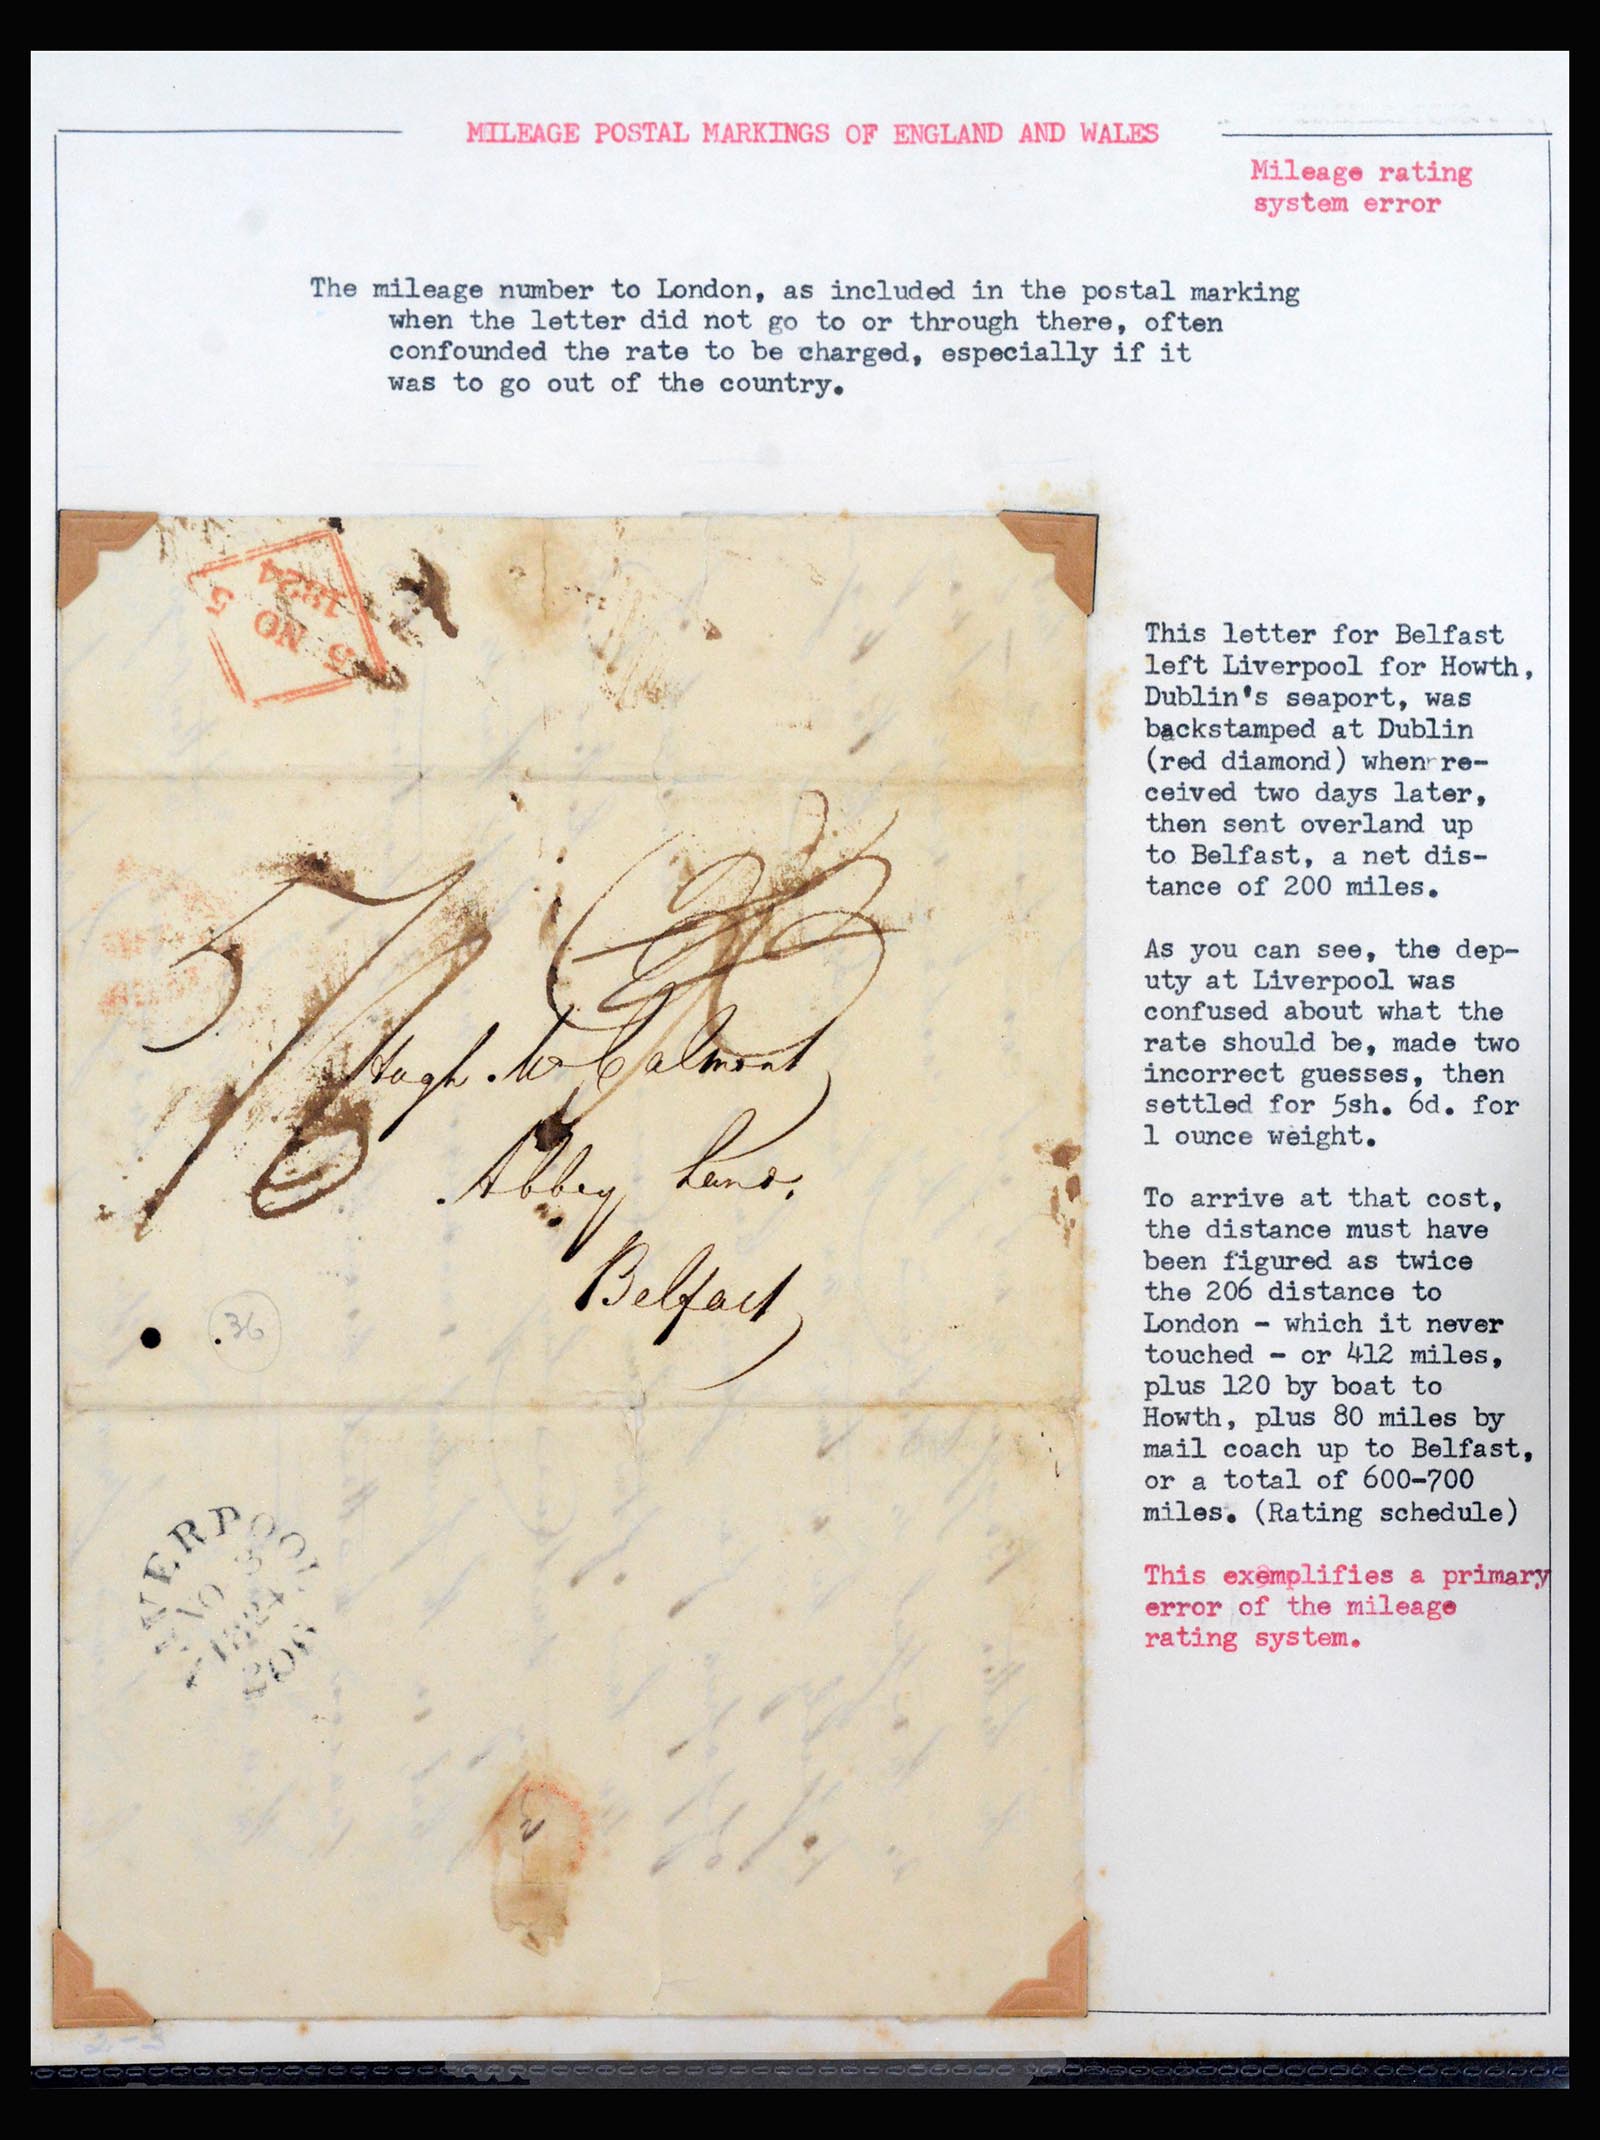 MILEAGE POSTAL MARKINGS OF ENGLAND AND WALES
Mileage rating
system error
The mileage number to London, as included in the postal marking
when the letter did not go to or through there, often
confounded the rate to be charged, especially if it
was to go out of the country.
5 NO 5
1824
5/6
Hugh McCalmont
Abbey Land,
Belfast
36
LIVERPOOL
NO 3
1824
206
This letter for Belfast
left Liverpool for Howth,
Dublin's seaport, was
backstamped at Dublin
(red diamond) when re-
ceived two days later,
then sent overland up
to Belfast, a net dis-
tance of 200 miles.
As you can see, the dep-
uty at Liverpool was
confused about what the
rate should be, made two
incorrect guesses, then
settled for 5sh. 6d. for
1 ounce weight.
To arrive at that cost,
the distance must have
been figured as twice
the 206 distance to
London - which it never
touched - or 412 miles,
plus 120 by boat to
Howth, plus 80 miles by
mail coach up to Belfast,
or a total of 600-700
miles. (Rating schedule)
This exemplifies a primary
error of the mileage
rating system.